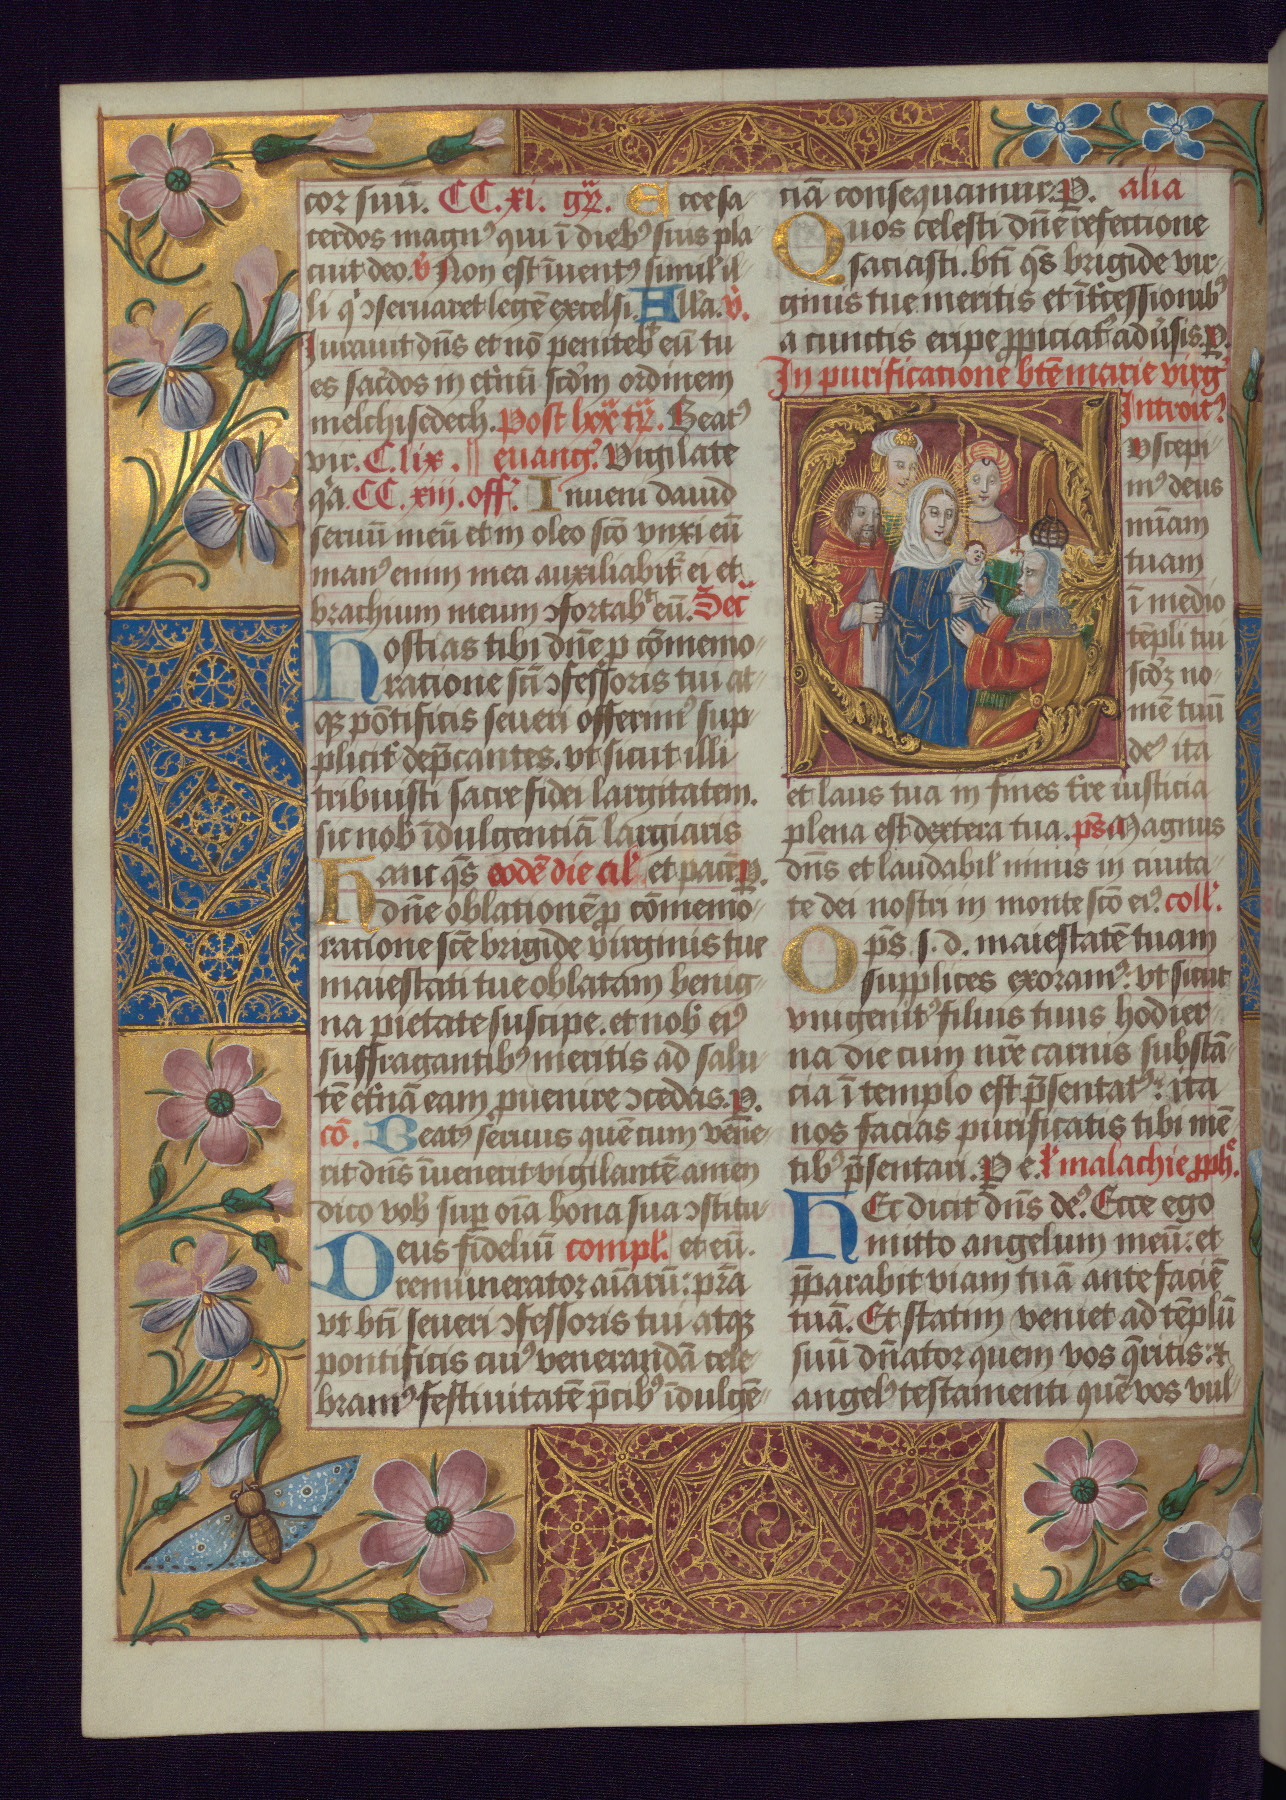 cor suū. CC. xi. gͬ. Ecce sa-
cerdos magnꝰ qui ī diebꝰ suis pla-
cuit deo. v̾ Non est īuentꝰ simił il-
li q̾ ↄseruaret legē excelsi. Alła. v̾.
Iurauit dn̄s et nō penitebᵗ eū tu
es sac̾dos in et̾nū scd̾m ordinem
melchisedech. Post lxxͣ tͬ. Beatꝰ
vir. C. lix. euangꝰ. Vigilate
q̾a. CC. xiii. off̾. Inueni dauid
seruū meū et in oleo scō vnxi eū
manꝰ enim mea auxiliabit᷑ ei et
brachium meum ↄfortabᵗ eū. Sec̾
Hostias tibi dn̄e ꝑ cōmemo-
ratione sc̄i ↄfessoris tui at-
qꝫ pōtificis seueri offerimꝰ sup-
plicit̾ dep̄cantes. vt sicut illi
tribuisti sacre fidei largitatem.
sic nob̾ īdulgentiā largiaris
Hanc qs̄ eodē die al̾ et pacē P.
dn̄e oblationē ꝓ cōmemo-
ratione scē brigide virginis tue
maiestati tue oblatam benig-
na pietate suscipe. et nob̾ eiꝰ
suffragantibꝰ meritis ad salu-
tē et̾nā eam ꝓuenire ↄcedas. P.
cō. Beatꝰ seruus quē cum vēne-
rit dn̄s īuenerit vigilantē amen
dico vob̾ sup̄ oīa bona sua ↄstitu-
Deus fideliū compł. et eū.
remunerator aīarū: pr̄a
vt bt̄i seueri ↄfessoris tui atqꝫ
pontificis cuiꝰ venerandā cele-
bramꝰ festiuitatē p̄cibꝰ īdulgē-
ciā consequamur. P. alia
Quos celesti dn̄e refectione
saciasti. bt̄i qs̄ brigide vir-
ginis tue meritis et īt̾cessionibꝰ
a cunctis eripe ꝓpiciatꝰ adu̾sis. P.
In purificatione btē marie virg̾
Introitꝰ.
uscepi-
mꝰ deus
mīam
tuam
ī medio
tēpli tui
scd̾ꝫ no-
mē tuū
deꝰ ita
et laus tua in fines t̾re iusticia
plena est dextera tua. ps̄ Magnus
dn̄s et laudabił nimis in ciuita-
te dei nostri in monte scō eiꝰ. coll̾.
Op̄s. s. d. maiestatē tuam
supplices exoramꝰ: vt sicut
vnigenitꝰ filius tuus hodier-
na die cum nr̄e carnis substā-
cia ī templo est p̄sentatꝰ: ita
nos facias purificatis tibi mē-
tibꝰ p̄sentari. P e. ł malachie ꝓph̾e.
Hec dicit dn̄s deꝰ. Ecce ego
mitto angelum meū: et
p̄parabit viam tuā ante faciē
tuā. Et statim veniet ad tēplū
suū dn̄ator quem vos q̄ritis: et
angelꝰ testamenti quē vos vul-